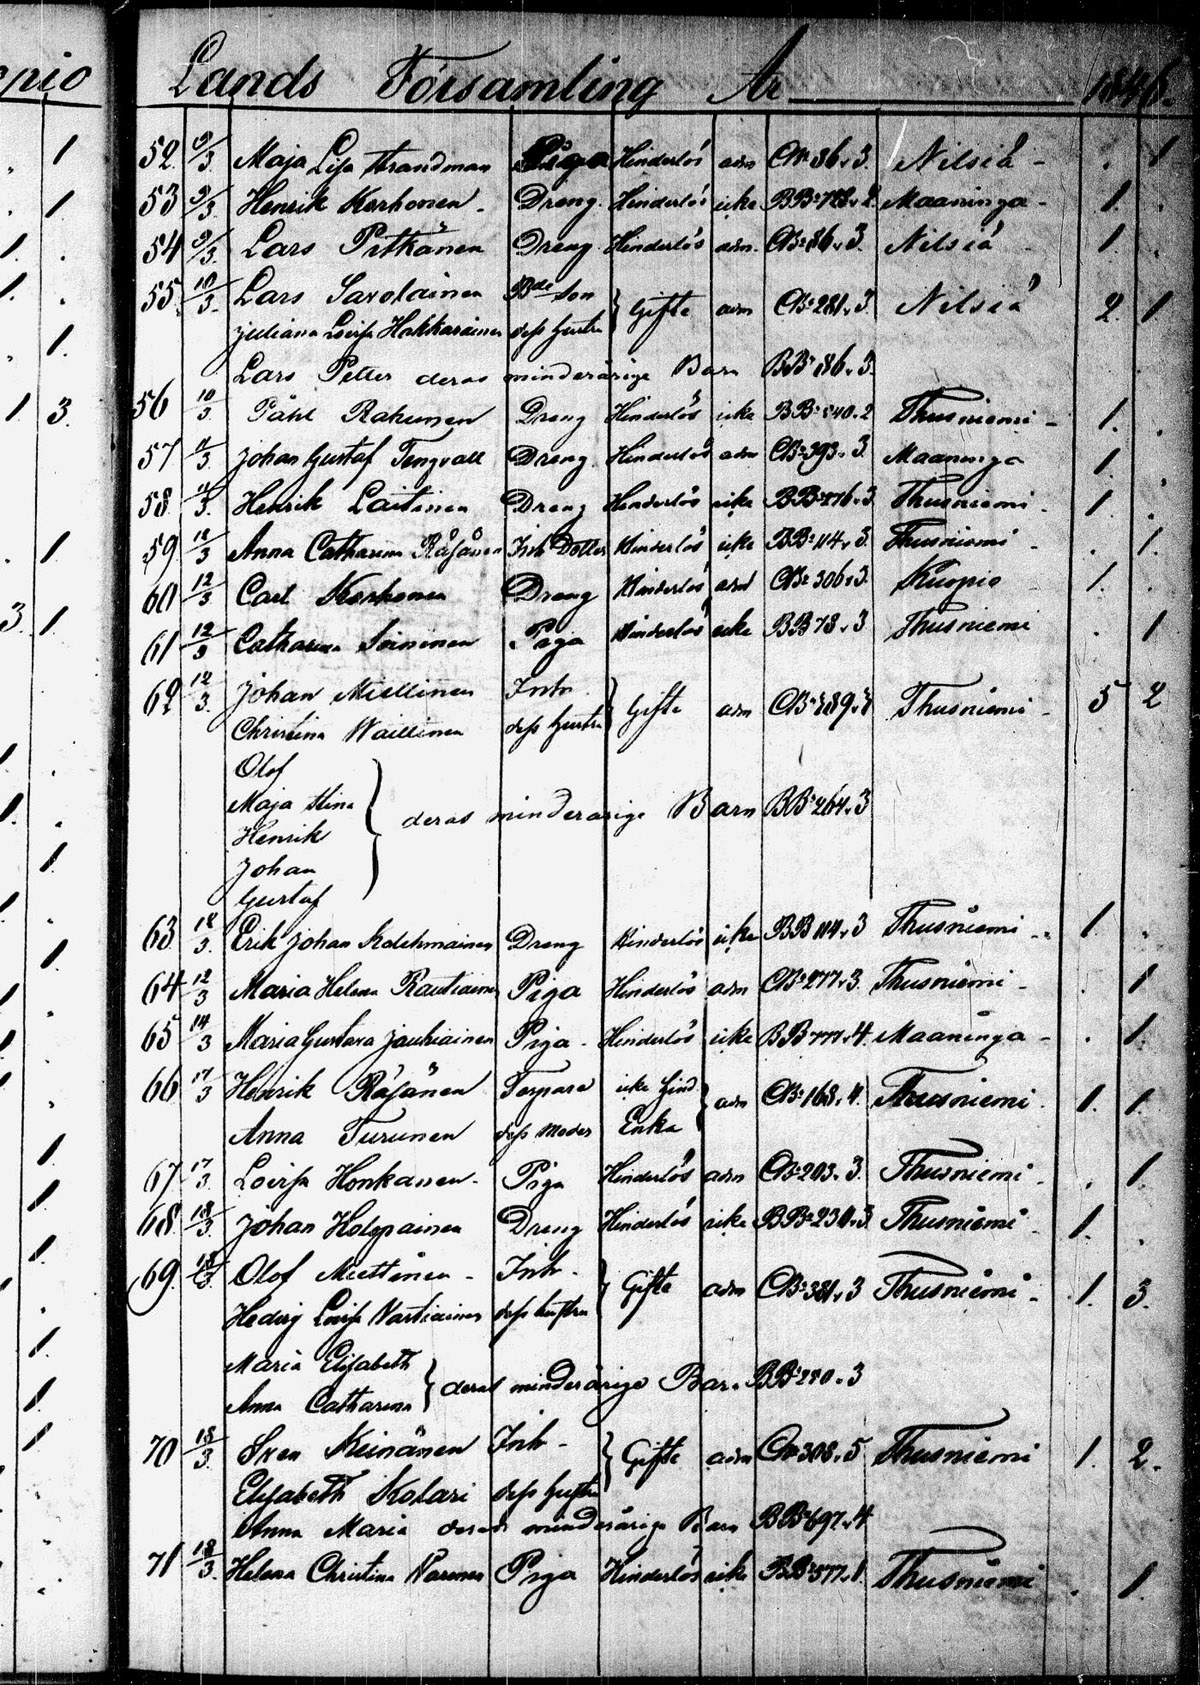 opio Lands Församling År 1846.
52. 9/3 Maja Lisa Strandman Piga Hinderlös adm CB: 36. v. 3. Nilsiä - . 1
53 9/3. Henrik Korhonen - Dreng. Hinderlös icke BB: 722. v. 2. Maaninga - 1. .
54 9/3. Lars Pitkänen Dreng Hinderlös adm. CB: 86. v. 3. Nilsiä 1. .
55. 10/3. Lars Savolainen Bde Son } Gifte adm CB: 281. v. 3. Nilsiä 2. 1
Juliana Lovisa Hakkarainen dess hustru
Lars Petter deras minderårige Barn BB: 86. v. 3.
56 10/3 Påhl Rahunen Dreng Hinderlös icke BB: 540. v. 2 Thusniemi - 1. .
57. 11/3. Johan Gustaf Tengvall Dreng. Hinderlös adm CB: 393. v. 3. Maaninga 1. .
58. 11/3. Henrik Laitinen Dreng Hinderlös icke BB: 276. v. 3. Thusniemi - 1. .
59. 12/3 Anna Catharina Räsänen Inh Dotter Hinderlös icke BB: 114. v. 3. Thusniemi - . 1.
60. 12/3. Carl Korhonen Dreng Hinderlös adm CB: 306. v. 3. Kuopio 1. .
61 12/3 Catharina Soininen Piga Hinderlös icke BB 78. v. 3 Thusniemi . 1
62 12/3. Johan Miettinen Inh. } Gifte adm CB: 289. v. 3 Thusniemi - 5 2
Christina Waittinen dess hustru
Olof
Maja Stina
Henrik } deras minderårige Barn BB: 264. v. 3
Johan
Gustaf
63. 18/3. Erik Johan Kolehmainen Dreng Hinderlös icke BB 114. v. 3 Thusniemi - 1. .
64 12/3 Maria Helena Rautiainen Piga Hinderlös adm CB: 277. v. 3. Thusniemi - . 1
65 14/3 Maria Gustava Jauhiainen Piga - Hinderlös icke BB 777. v. 4. Maaninga - . 1.
66 17/3 Henrik Räsänen Torpare icke Hind } adm CB: 168. v. 4. Thusniemi . 1. 1.
Anna Turunen dess Moder Enka
67. 17/3. Lovisa Honkanen. Piga Hinderlös adm CB: 203. v. 3. Thusniemi . 1
68. 18/3. Johan Holopainen Dreng Hinderlös icke BB: 230. v. 3. Thusniemi 1. .
69. 18/3 Olof Miettinen - Inh. } Gifte adm CB: 381. v. 3 Thusniemi - 1. 3.
Hedvig Lovisa Vartiainen dess hustru
Maria Elisabeth
Anna Catharina } deras minderårige Barn BB: 280. v. 3
70 18/3. Sven Keinänen Inh - } Gifte adm CB: 308. v. 5 Thusniemi 1. 2.
Elisabeth Kolari dess hustru
Anna Maria deras minderårige Barn BB: 697. v. 4
71 18/3. Helena Christina Piga Hinderlös icke BB: 577. v. 1 Thusniemi . 1.